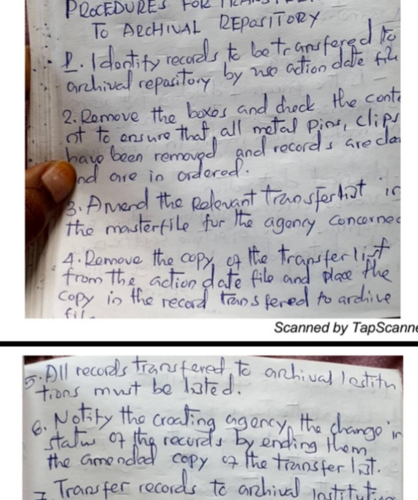 PROCEDURES FOR
TO ARCHIVAL REPOSITORY
1. Identify records to be transfered to
archival repository by use action date file
2. Remove the boxes and check the conte
nt to ensure that all metal pins, clips
have been removed and records are clea
and are in ordered.
3. Amend the Relevant Transferlist in
the masterfile fur the agency concerned
4. Remove the copy of the transfer list
from the action date file and place the
copy in the record transfered to archive
file
Scanned by TapScanne
5. All records transfered to archival Institu
tions must be listed.
6. Notify the creating agency, the change in
status of the records by ending them
the amended copy of the transfer list.
7. Transfer records to archival institution